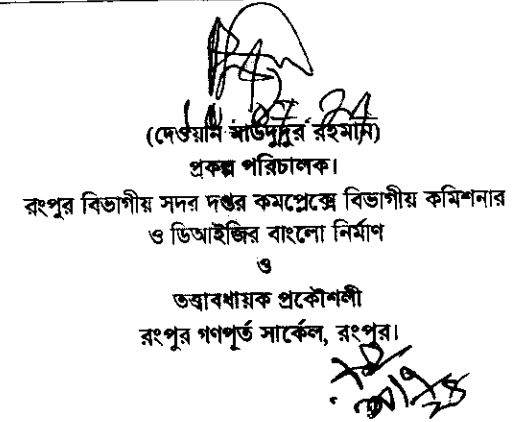 (দেওয়ান মাউদুদুর রহমান)
প্রকল্প পরিচালক।
রংপুর বিভাগীয় সদর দপ্তর কমপ্লেক্সে বিভাগীয় কমিশনার
ও ডিআইজির বাংলো নির্মাণ
ও
তত্ত্বাবধায়ক প্রকৌশলী
রংপুর গণপূর্ত সার্কেল, রংপুর।